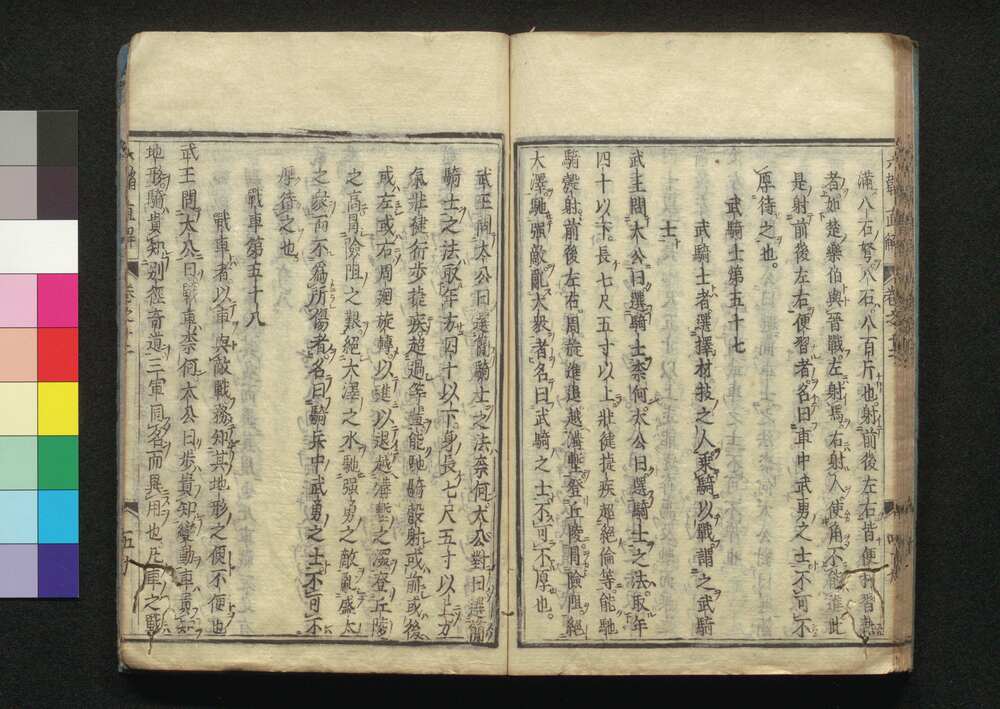 六韜直解 卷之十二
滿八石弩八石八百斤也射前後左右皆便於習熟
者如楚樂伯與晉戰左射馬右射人使角不能進此
是射前後左右便習者名曰車中武勇之士不可不
厚待之也。
武騎士第五十七
武騎士者選擇材技之人乗騎以戰謂之武騎
士
武王問太公曰選騎士柰何太公曰選騎士之法取年
四十以下長七尺五寸以上壯徤捷疾超絶倫等能馳
騎彀射前後左右周旋進退越溝塹登丘陵冒險阻絶
大澤馳强敵亂大衆者名曰武騎之士不可不厚也。
武王問太公曰選簡騎士之法柰何太公對曰選簡
騎士之法取年方四十以下身長七尺五寸以上方
氣壯徤行步捷疾超過等輩能馳騎彀射或前或後
或左或右周廻旋轉以進以退越溝塹之深登丘陵
之高冒險阻之艱絶大澤之水馳强勇之敵亂盛大
之衆而不爲所傷者名曰騎兵中武勇之士不可不
厚待之也
戰車第五十八
戰車者以車與敵戰務知其地形之便不便也
武王問太公曰戰車柰何太公曰步貴知變動車貴知
地形騎貴知別徑奇道三軍同名而異用也凡車之戰
直解 卷之十二 五